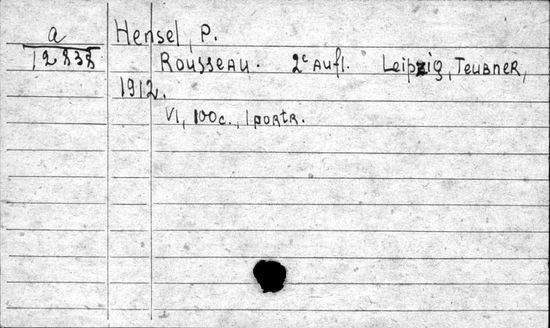 a
12838
Hensel, P.
Rousseau. 2e Aufl. Leipzig, Teubner,
1912.
VI, 100c., 1 portr.